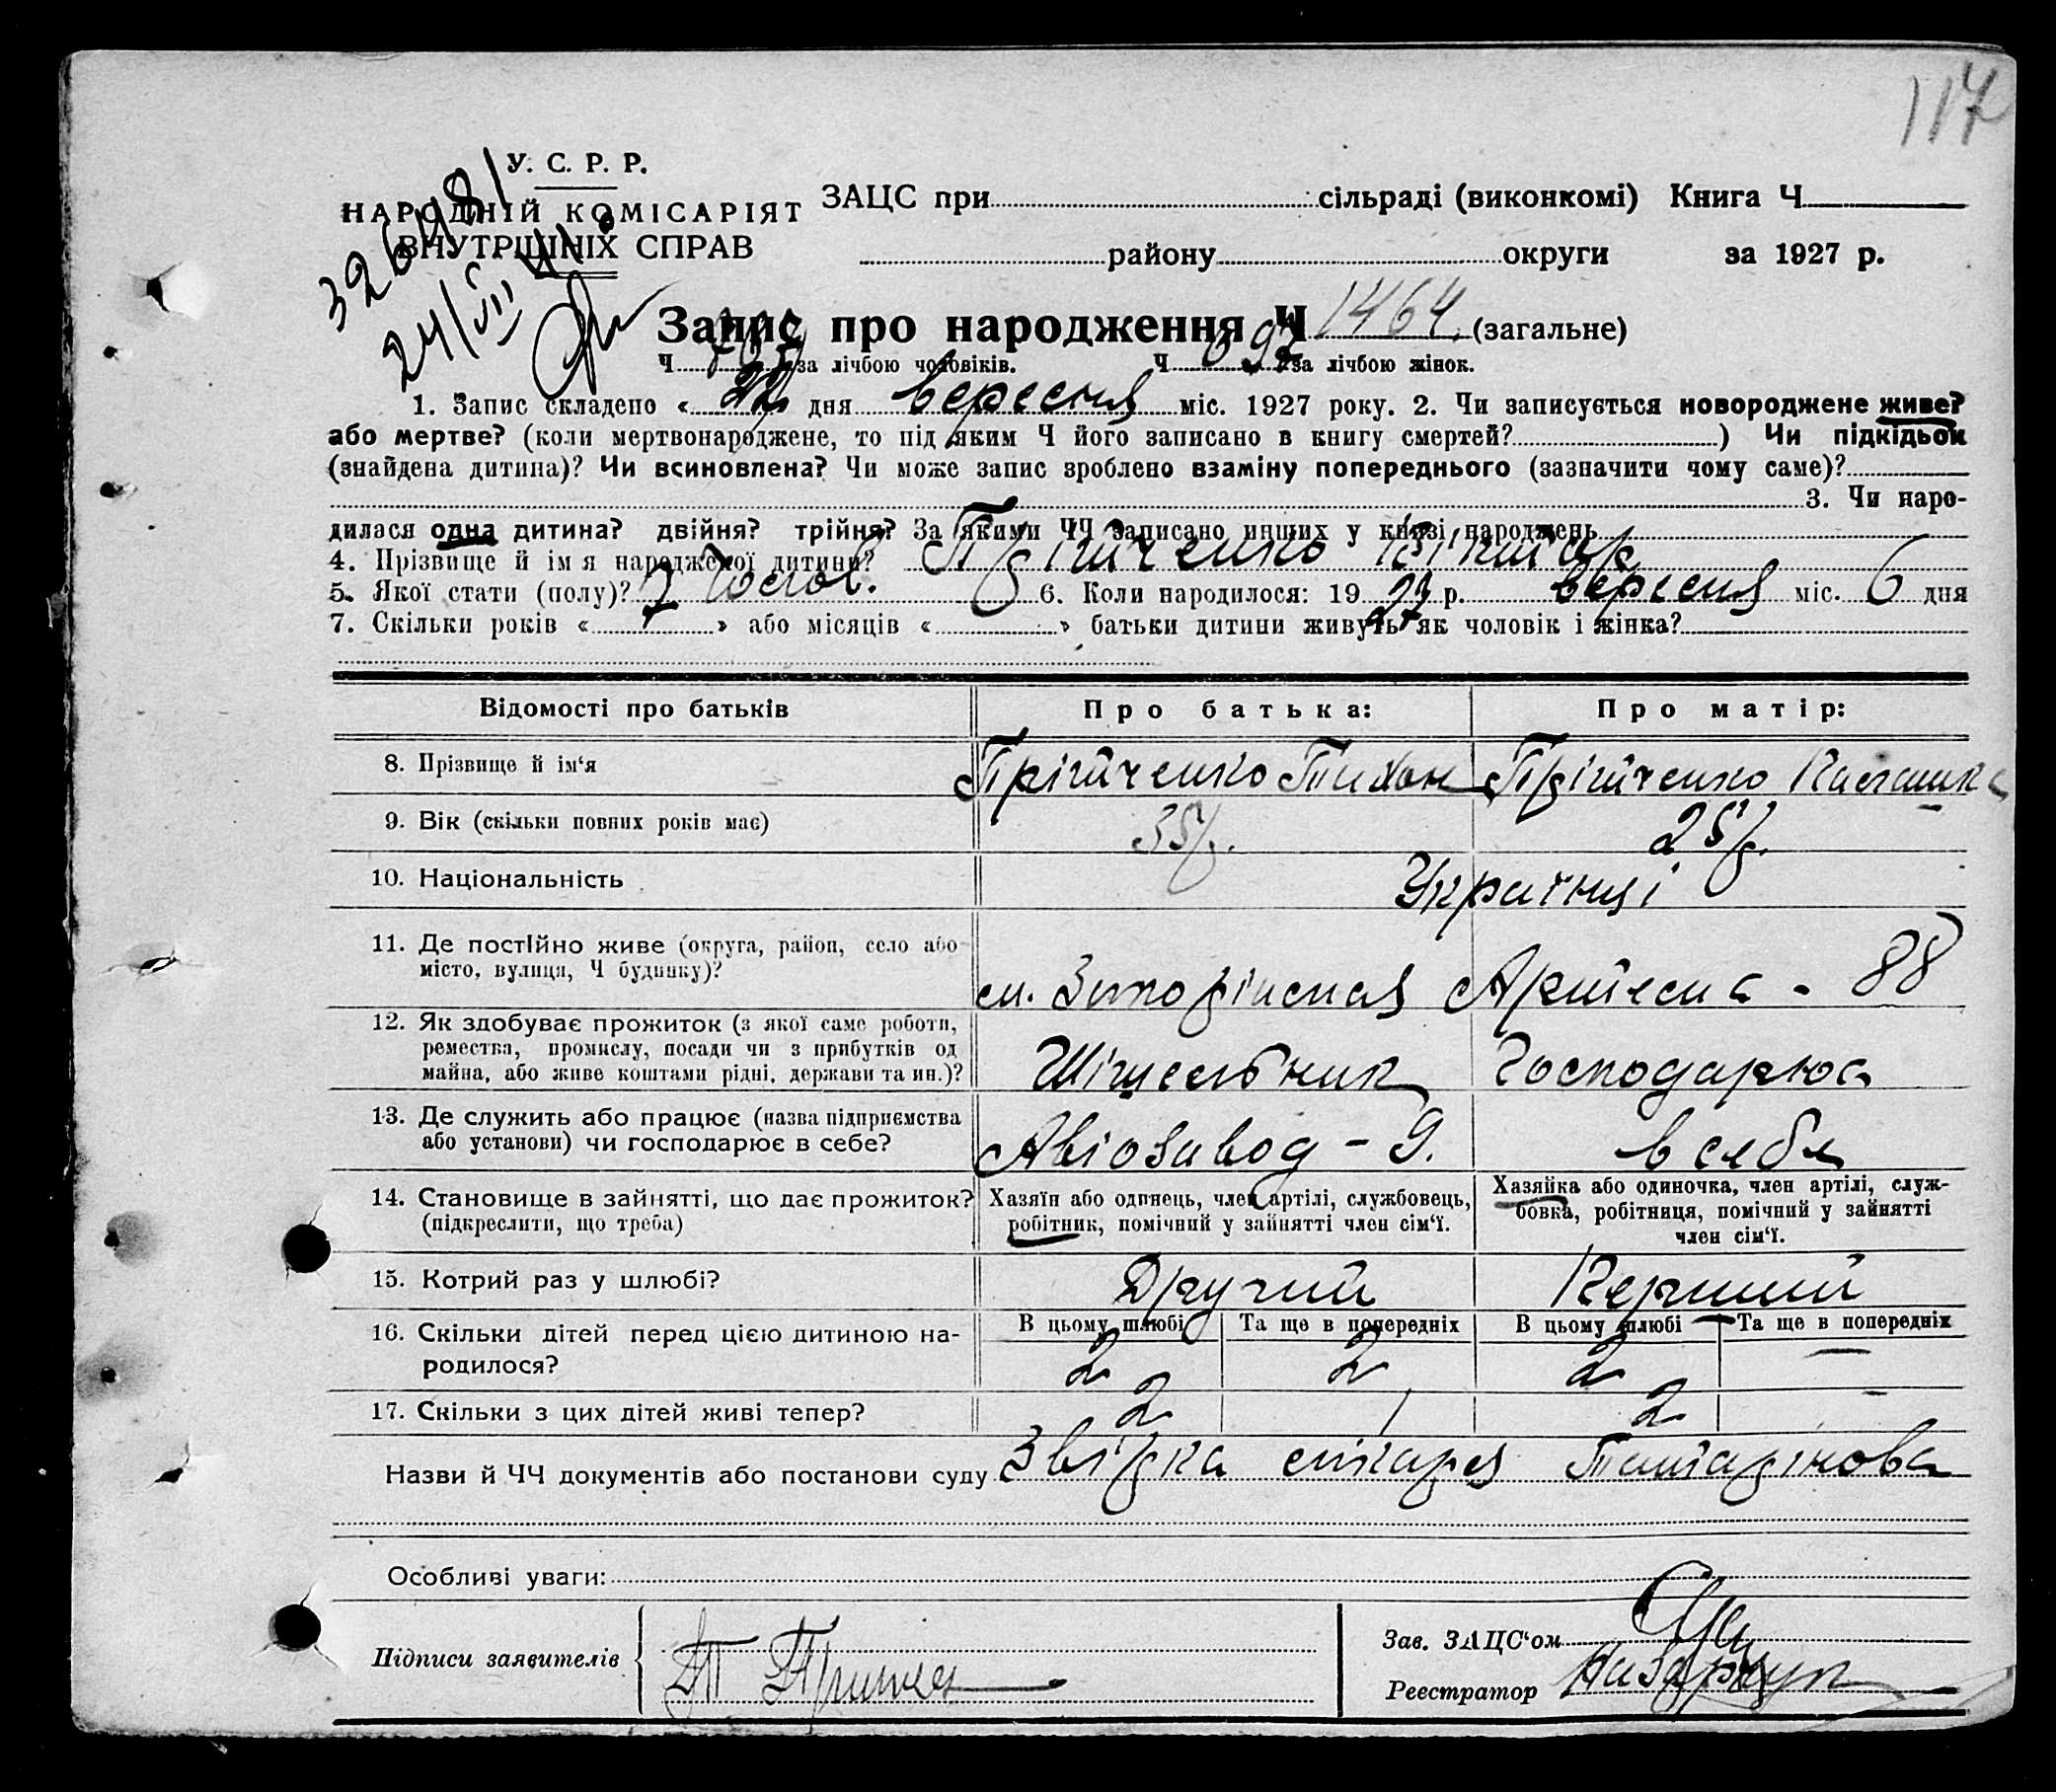 117
У. С. Р. Р.
НАРОДНІЙ КОМІСАРІЯТ
ВНУТРІШНІХ СПРАВ
32648
24/VIII 41
ЗАЦС при сільраді (виконкомі) Книга Ч
району округи за 1927 р.
Запис про народження Ч 1464 (загальне)
Ч за лічбою чоловіків. Ч 697 за лічбою жінок.
1. Запис складено « 22 дня вересня міс. 1927 року. 2. Чи записується новороджене живе?
або мертве? (коли мертвонароджене, то під яким Ч його записано в книгу смертей? ) Чи підкідьок
(знайдена дитина)? Чи всиновлена? Чи може запис зроблено взаміну попереднього (зазначити чому саме)?
3. Чи наро-
дилася одна дитина? двійня? трійня? За якими ЧЧ записано инших у книзі народжень
4. Прізвище й ім я народженої дитини? Прігітченко Віктар
5. Якої стати (полу)? чолов. 6. Коли народилося: 19 27 р. вересня міс. 6 дня
7. Скільки років « 7 » або місяців « » батьки дитини живуть як чоловік і жінка?
Відомості про батьків Про батька: Про матір:
8. Прізвище й ім‘я Прігітченко Тихон Прігітченко
9. Вік (скільки повних років має) 35 р. 25 р.
10. Національність Українці
11. Де постійно живе (округа, район, село або
місто, вулиця, Ч будинку)? Артемна - 88
12. Як здобуває прожиток (з якої саме роботи,
ремества, промислу, посади чи з прибутків од
майна, або живе коштами рідні, держави та ин.)? Господарює
13. Де служить або працює (назва підприємства
або установи) чи господарює в себе? Авіозавод - 9. в себе
14. Становище в зайнятті, що дає прожиток?
(підкреслити, що треба)
Хазяїн або одинець, член артілі, службовець,
робітник, помічний у зайнятті член сім‘ї.
Хазяйка або одиночка, член артілі, служ-
бовка, робітниця, помічний у зайнятті
член сім‘ї.
15. Котрий раз у шлюбі? Другий Перший
В цьому шлюбі Та ще в попередніх В цьому шлюбі Та ще в попередніх
16. Скільки дітей перед цією дитиною на-
родилося? 2 2 2 —
17. Скільки з цих дітей живі тепер? 2 1 2 —
Назви й ЧЧ документів або постанови суду Звірка лікаря
Особливі уваги:
Підписи заявителів
Зав. ЗАЦС‘ом
Реєстратор